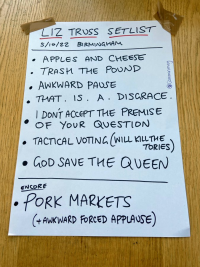 LIZ TRUSS SETLIST
5/10/22 BIRMINGHAM
• APPLES AND CHEESE
• TRASH THE POUND
• AWKWARD PAUSE
• THAT. IS. A. DISGRACE.
• I DON'T ACCEPT THE PREMISE
OF YOUR QUESTION
• TACTICAL VOTING (WILL KILL THE
TORIES)
• GOD SAVE THE QUEEN
ENCORE
• PORK MARKETS
(+ AWKWARD FORCED APPLAUSE)